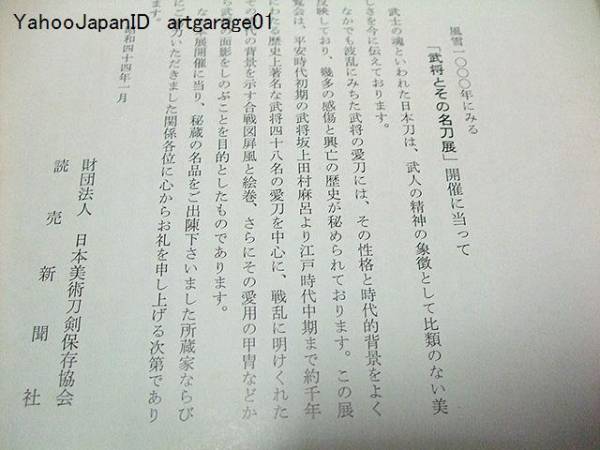 YahooJapanID artgarage01
風雪一〇〇〇年にみる
「武将とその名刀展」開催に当って
武士の魂といわれた日本刀は、武人の精神の象徴として比類のない美
しさを今に伝えております。
なかでも波乱にみちた武将の愛刀には、その性格と時代的背景をよく
反映しており、幾多の感傷と興亡の歴史が秘められております。この展
覧会は、平安時代初期の武将坂上田村麻呂より江戸時代中期まで約千年
にわたる歴史上著名な武将四十八名の愛刀を中心に、戦乱に明けくれた
その代の背景を示す合戦図屏風と絵巻、さらにその愛用の甲冑などか
ら武
の面影をしのぶことを目的としたものであります。
な
展開催に当り、秘蔵の名品をご出陳下さいました所蔵家ならび
にご
力いただきました関係各位に心からお礼を申し上げる次第であり
ます。
昭和四十四年一月
財団法人 日本美術刀剣保存協会
読売新聞社